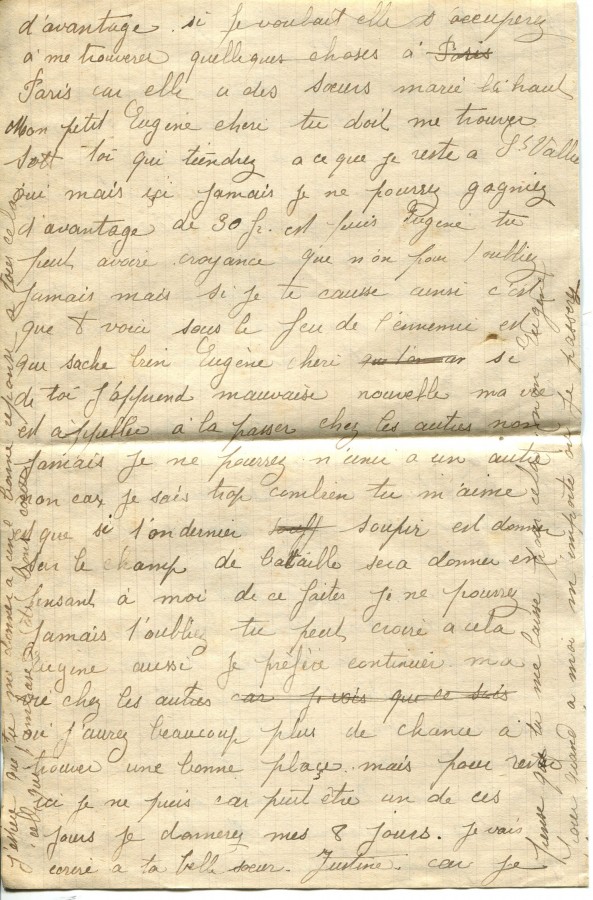 d'avantage. si Je voulait elle s'occuperez
à me trouverer quelleques choses à Paris
Paris car elle a des Sœurs marié là haut
Mon petit Eugène cheri tu doit me trouver
toi qui tiendrez a ce que je reste a St Vallier
oui mais ici jamais je ne pourrez gagniez
d'avantage de 30 fr. est puis Eugène tu
peut avoire croyance que non pour t'oubliez
Jamais mais si je te causse ainsi c'est
que t voici sous le feu de l'ennemie est
que sache bien Eugène cheri si
de toi j'apprend mauvaise nouvelle ma vie
est appellée à la passer chez les autres non
Jamais Je ne pourrez n'unir a un autre
non car je sais trop combien tu m'aime
est que si ton dernier souff soupir est donner
Sur le champ de bataille sera donner en
pensant à moi de ce faites Je ne pourrez
Jamais t'oubliez tu peut croire a cela
Eugène aussi Je préfère continuier ma
vie chez les autres car je vois que ce suis
ou j'aurez beaucoup plus de chance à
trouver une bonne plaçe. mais pour reste
ici je ne puis car peut être un de ces
jours je donnerez mes 8 jours. Je vais
écrire a ta belle sœur. Justine car je
pense que tu me laisse pour cela mon Eugène
quand à moi m'importe ou je passerez
j'espère que tu me donnera une bonne réponse a tous cela